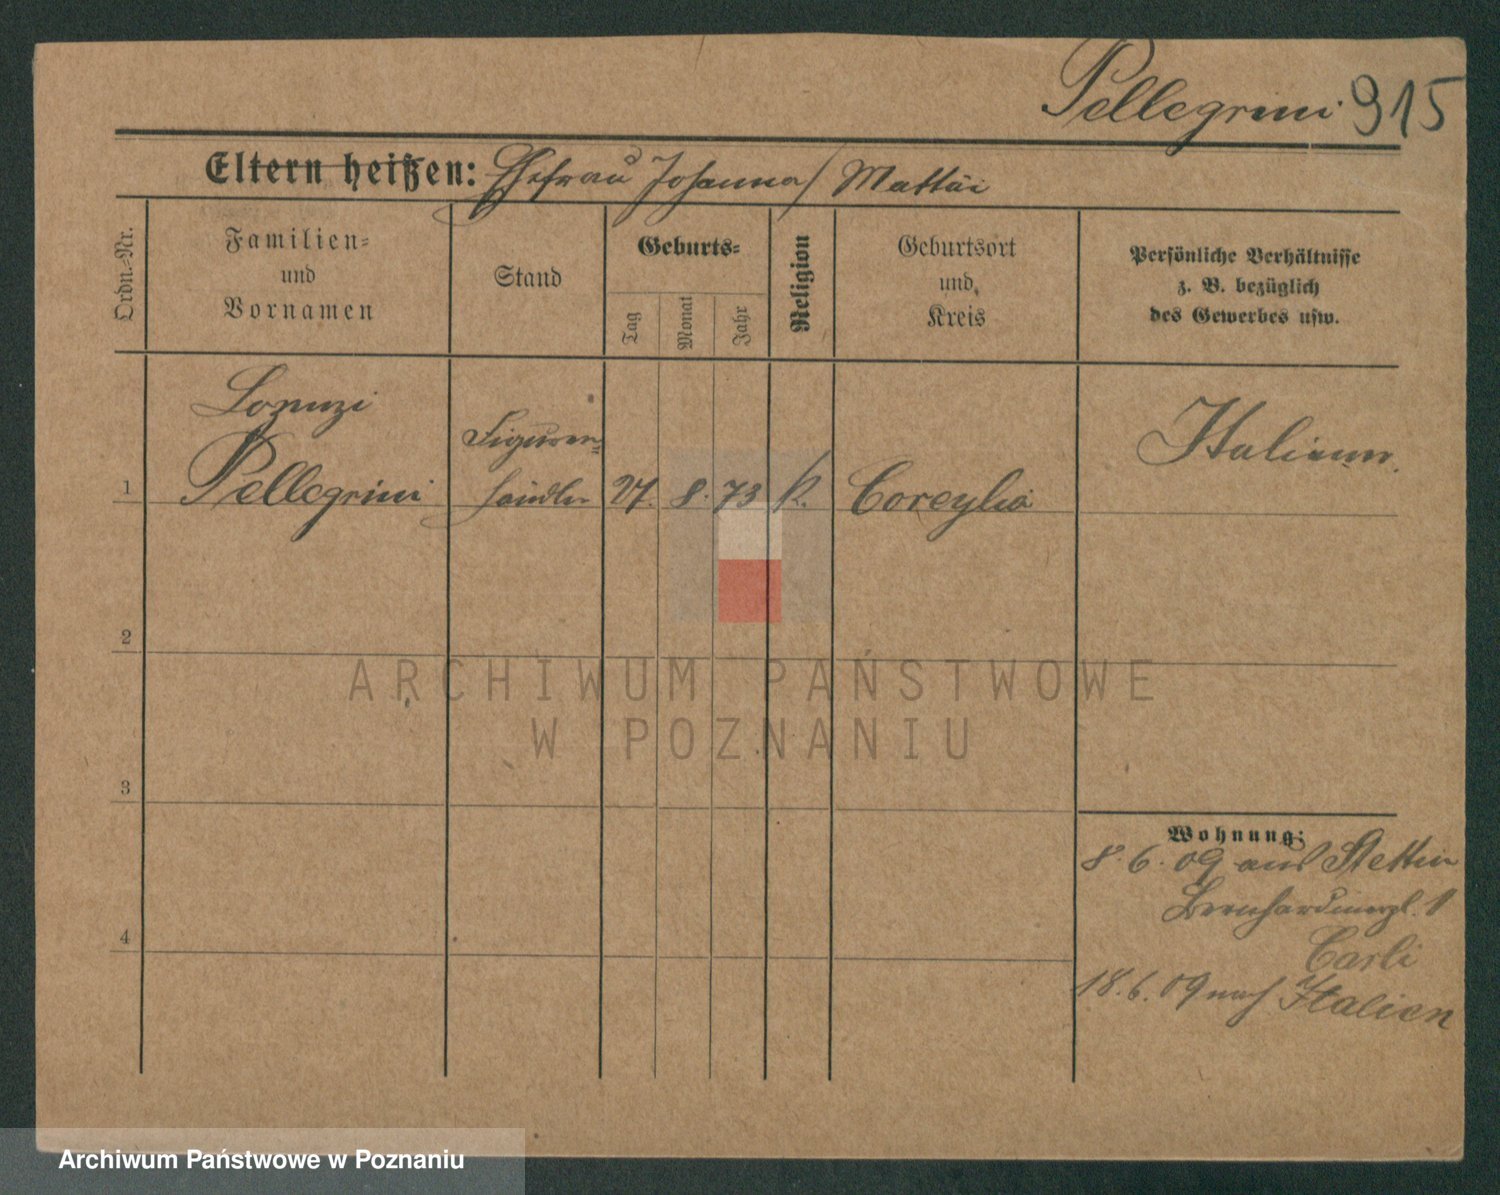 Pellegrini 915
Eltern heißen: Ehefrau Johanna / Mattùi
Ordn.-Nr.
Familien-
und
Vornamen
Stand
Geburts-
Tag
Monat
Jahr
Religion
Geburtsort
und
Kreis
Persönliche Verhältnisse
z. B. bezüglich
des Gewerbes usw.
Lorenzi
Pellegrini
Figuren-
händler
1
8. 73 K.
Coreglia
Italiener.
2
ARCHIWUM PAŃSTWOWE
W POZNANIU
3
4
Wohnung:
8. 6. 09 aus Stettin
Bernhardinerpl. 1
Carli
18. 6. 09 nach Italien
Archiwum Państwowe w Poznaniu